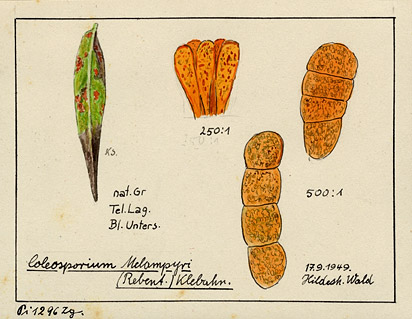 250:1
Ks.
nat. Gr
Tel. Lag.
Bl. Unters.
500:1
Coleosporium Melampyri
(Rebent.) Klebahn.
17.9.1949.
Hildesh. Wald
Pi 1296 Zg.